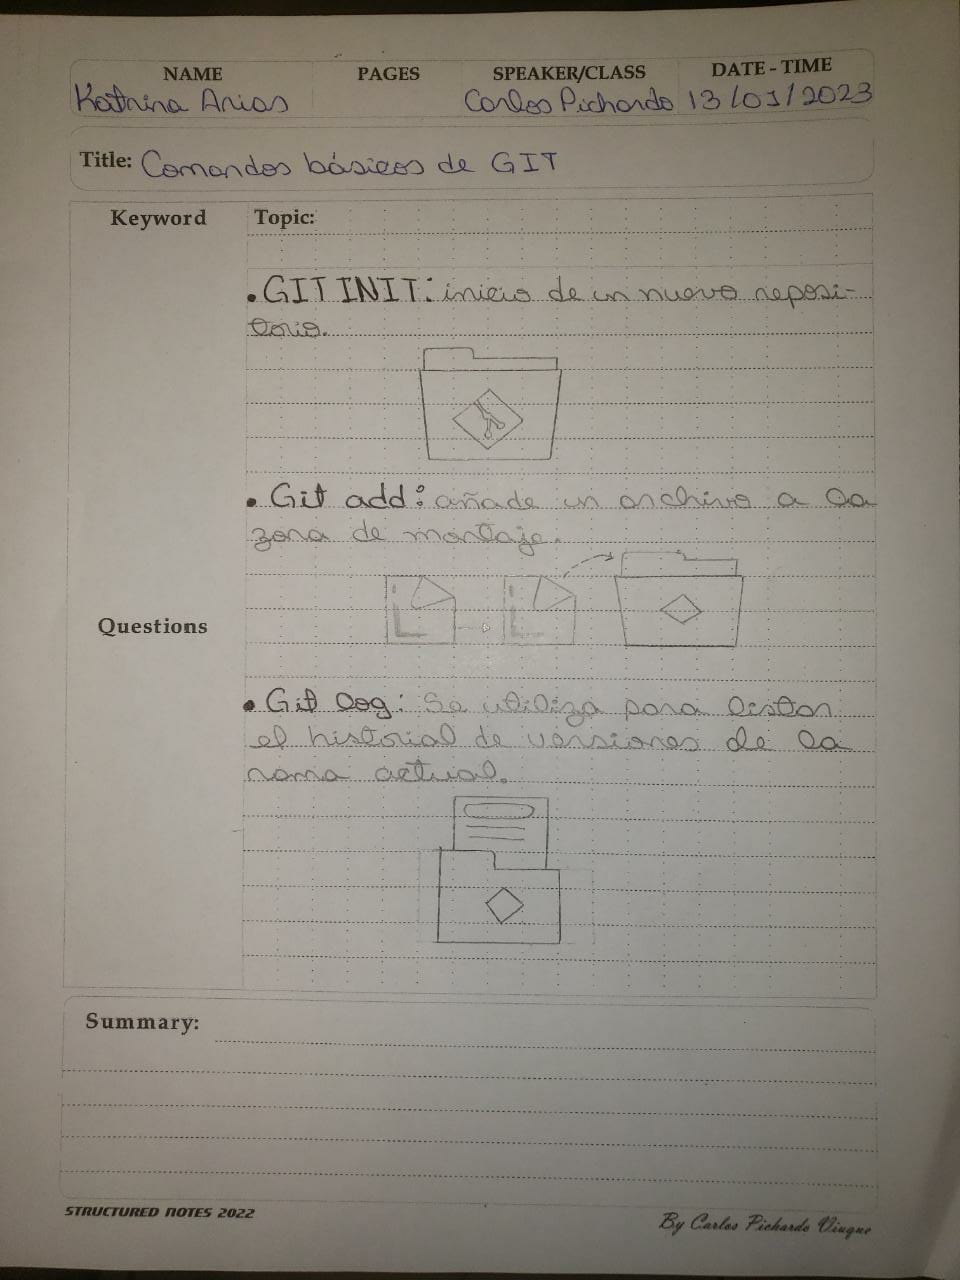 NAME PAGES SPEAKER/CLASS DATE - TIME
Katrina Arias Carlos Pichardo 13/01/2023
Title: Comandos básicos de GIT
Keyword Topic:
• GIT INIT: inicio de un nuevo reposi-
torio.
• Git add: añade un archivo a la
zona de montaje.
Questions
• Git log: Se utiliza para listar
el historial de versiones de la
rama actual.
Summary:
STRUCTURED NOTES 2022
By Carlos Pichardo Viuque